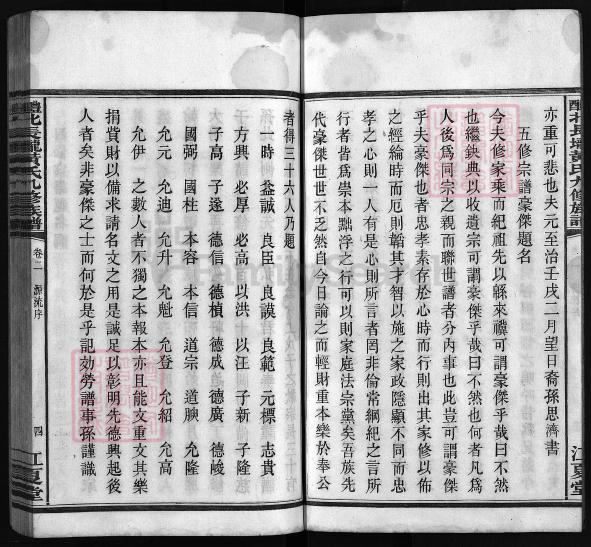 亦重可悲也夫元至治壬戌二月望日裔孫思濟書
五修宗譜豪傑題名
今夫修家乘而紀祖先以繇來禩可謂豪傑乎哉曰不然
也繼鈌典以收遺宗可謂豪傑乎哉曰不然也何者凡爲
人後爲同宗之親而聯世譜者分內事也此豈可謂豪傑
乎夫豪傑也者忠孝素存於心時而行則出其家修以佈
之經綸時而厄則韜其才智以施之家政隱顯不同而忠
孝之心則一人有是心則所言者罔非倫常綱紀之言所
行者皆爲崇本黜浮之行可以則家庭法宗黨矣吾族先
代豪傑世世不乏然自今日論之而輕財重本樂於奉公
者得三十六人乃題
一時 益誠 良臣 良謨 良範 元標 志貴
方興 必厚 必高 以洪 以汪 子新 子隆
子高 子遠 德信 德楨 德成 德廣 德峻
國弼 國柱 本容 本信 道宗 道腴 允隆
允元 允迪 允升 允魁 允登 允紹 允高
允伊 之數人者不獨之本報本亦且能文重文其樂
捐貲財以備求請名文之用是誠足以彰明先德興起後
人者矣非豪傑之士而何於是乎記効勞譜事孫謹識
醴北長壠黃氏九修族譜
卷二 源流序
四
江夏堂